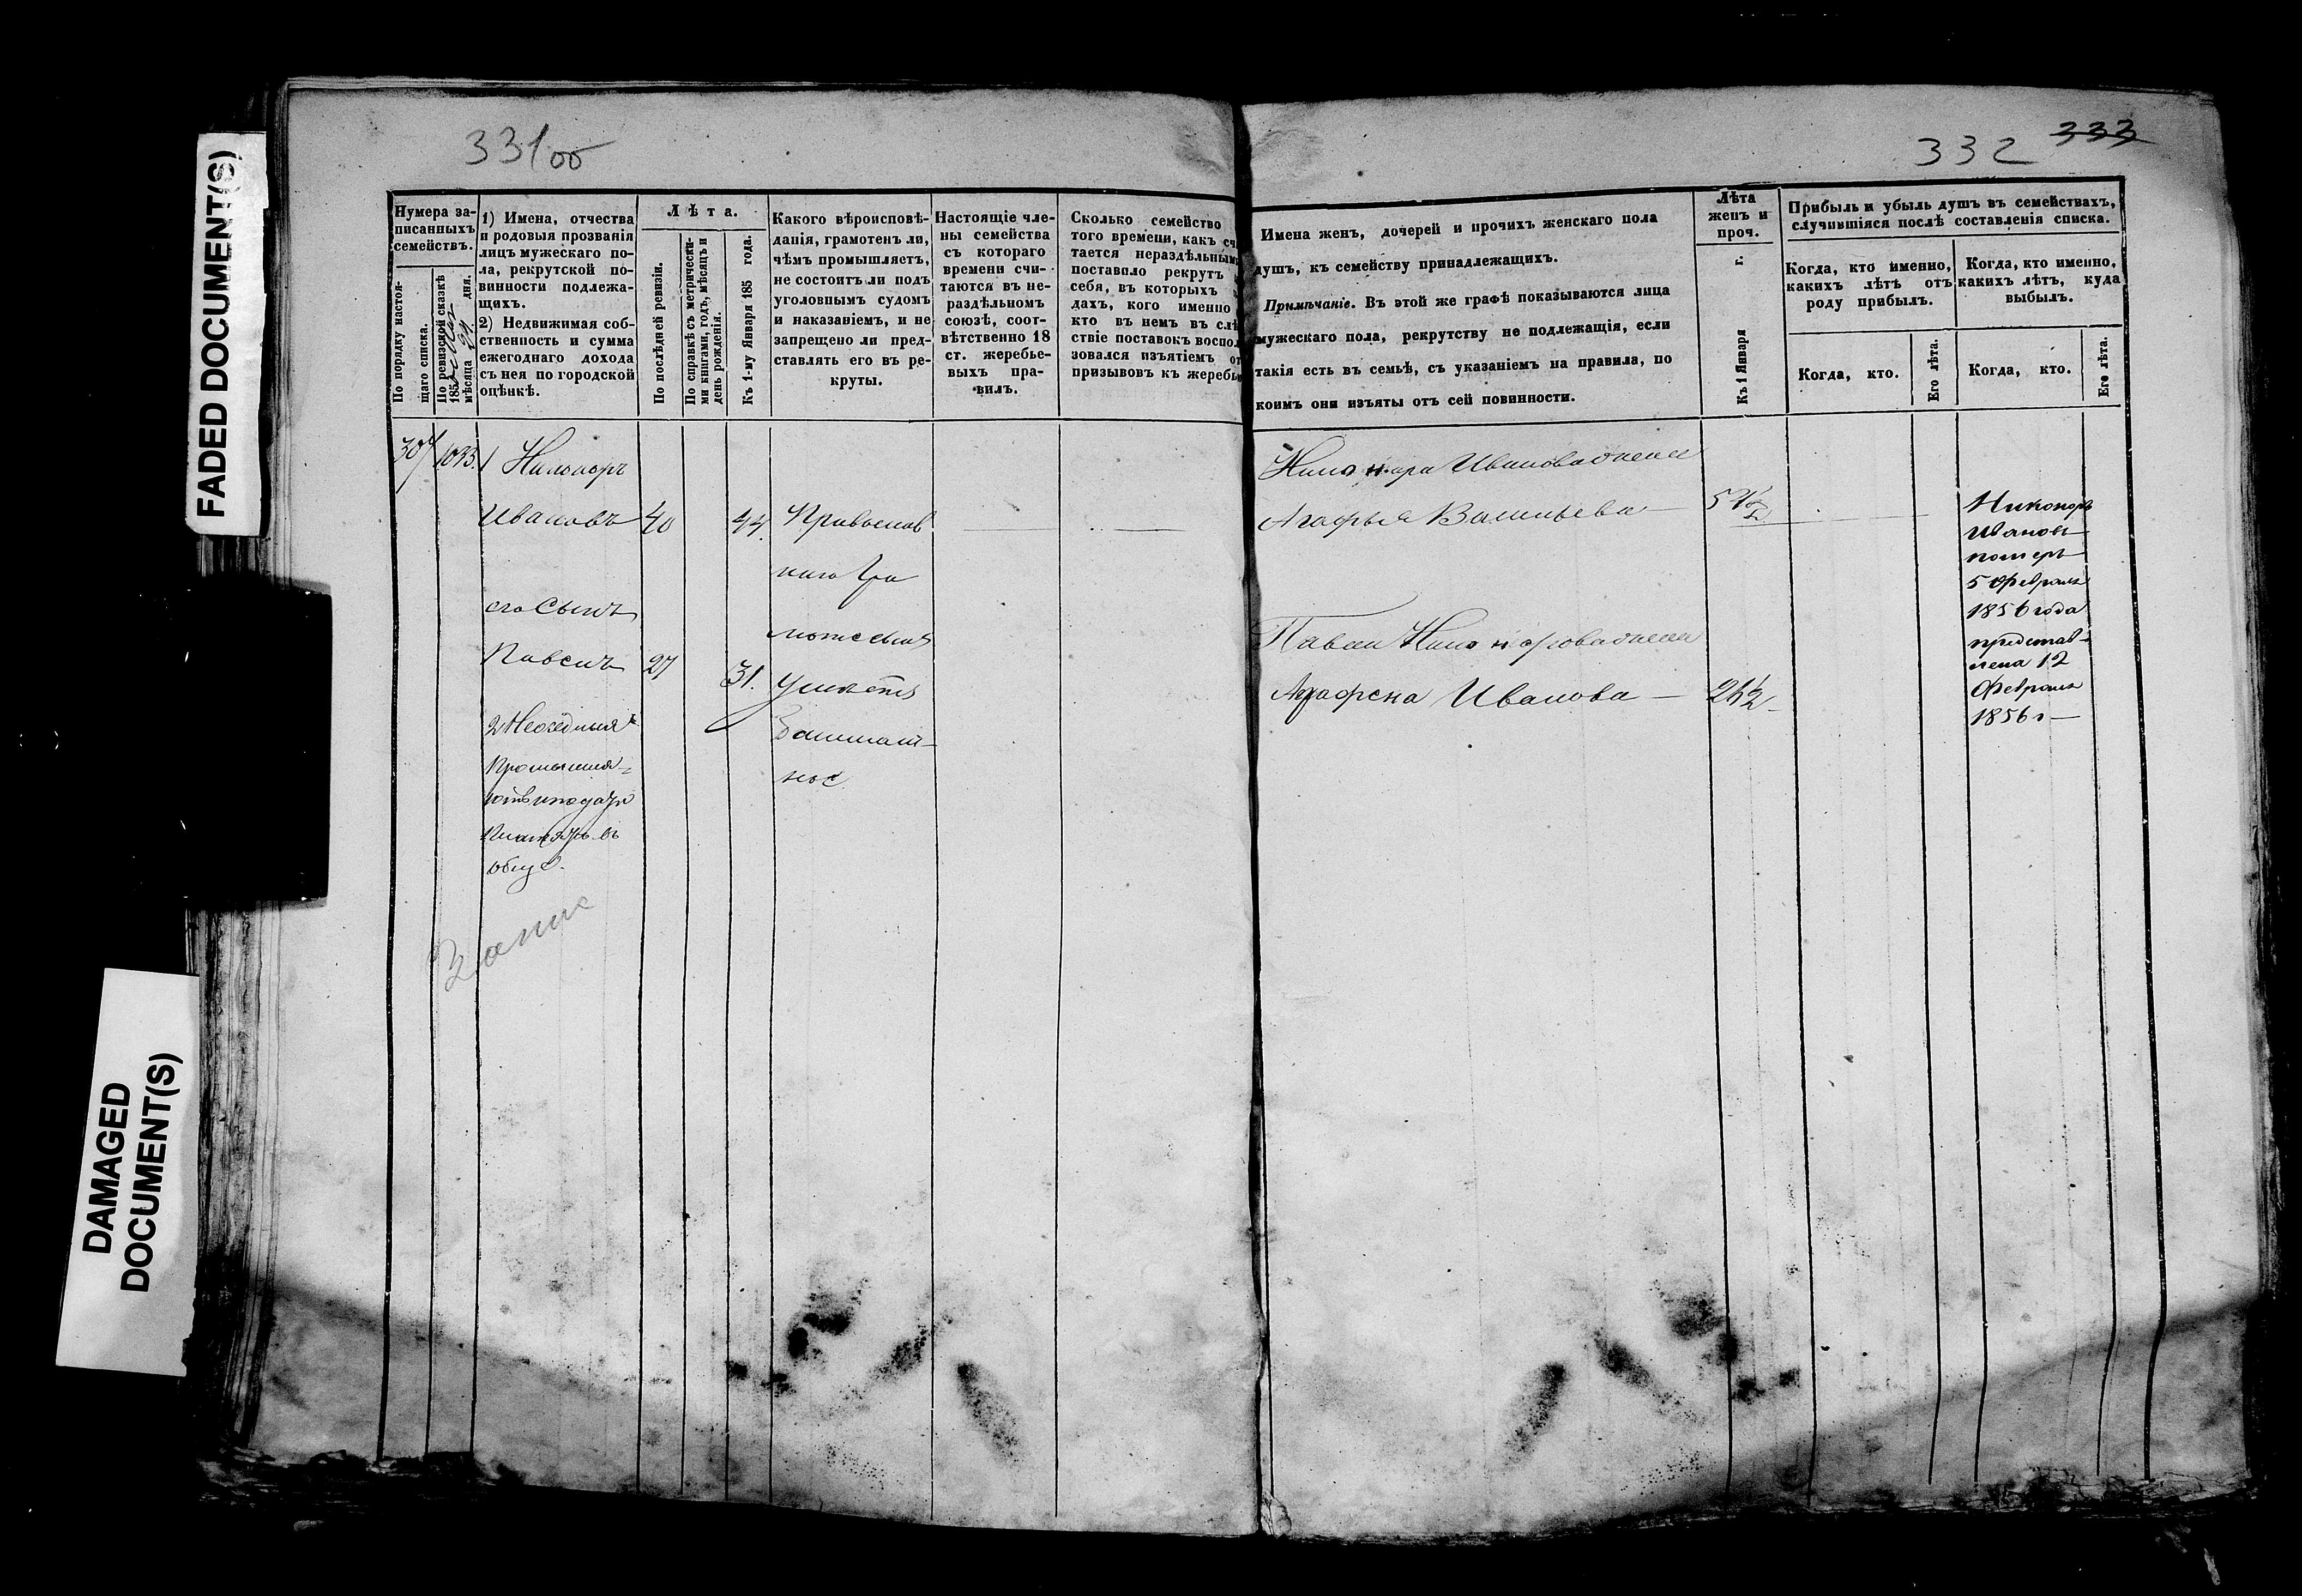 FADED DOCUMENT(S)
DAMAGED
DOCUMENT(S)
331об
Нумера за-
писанныхъ
семействъ.
По порядку настоя-
щаго списка.
По ревизской сказкѣ
185
мѣсяца 24 дня.
1) Имена, отчества
и родовыя прозванія
лицъ мужескаго по-
ла, рекрутской по-
винности подлежа-
щихъ.
2) Недвижимая соб-
ственность и сумма
ежегоднаго дохода
съ нея по городской
оцѣнкѣ.
Лѣта.
По послѣдней ревизіи.
По справкѣ съ метрически-
ми книгами, годъ, мѣсяцъ и
день рожденія.
Къ 1-му Января 185 года.
Какого вѣроисповѣ-
данія, грамотенъ ли,
чѣмъ промышляетъ,
не состоитъ ли подъ
уголовнымъ судомъ
и наказаніемъ, и не
запрещено ли пред-
ставлять его въ ре-
круты.
Настоящіе чле-
ны семейства
съ котораго
времени счи-
таются въ не-
раздѣльномъ
союзѣ, соот-
вѣтственно 18
ст. жеребье-
выхъ пра-
вилъ.
Сколько семейство
того времени, какъ сч
тается нераздѣльным
поставило рекрутъ
себя, въ которыхъ
дахъ, кого именно
кто въ немъ въ слѣ
ствіе поставокъ воспол
зовался изъятіемъ от
призывовъ къ жеребь
307 1033. 1 Никоноръ
Ивановъ 40 44. Православ
наго Гра
его Сынъ
Павелъ 27 31.
2 Неоседлыя
подати
Платятъ въ
общ.
332 333
Имена женъ, дочерей и прочихъ женскаго пола
душъ, къ семейству принадлежащихъ.
Примѣчаніе. Въ этой же графѣ показываются лица
мужескаго пола, рекрутству не подлежащія, если
такія есть въ семьѣ, съ указаніемъ на правила, по
коимъ они изъяты отъ сей повинности.
Лѣта
женъ и
проч.
Къ 1 Января г.
Прибыль и убыль душъ въ семействахъ,
случившіяся послѣ составленія списка.
Когда, кто именно,
какихъ лѣтъ отъ
роду прибылъ.
Когда, кто именно,
какихъ лѣтъ, куда
выбылъ.
Когда, кто.
Его лѣта.
Когда, кто.
Его лѣта.
Никонора Иванова жена
Агафья Васильева —
Павла Никонорова жена
Аграфена Иванова — 24½
Никоноръ
Ивановъ
померъ
5 Февраля
1856 года
представ-
лена 12
Февраля
1856 г —